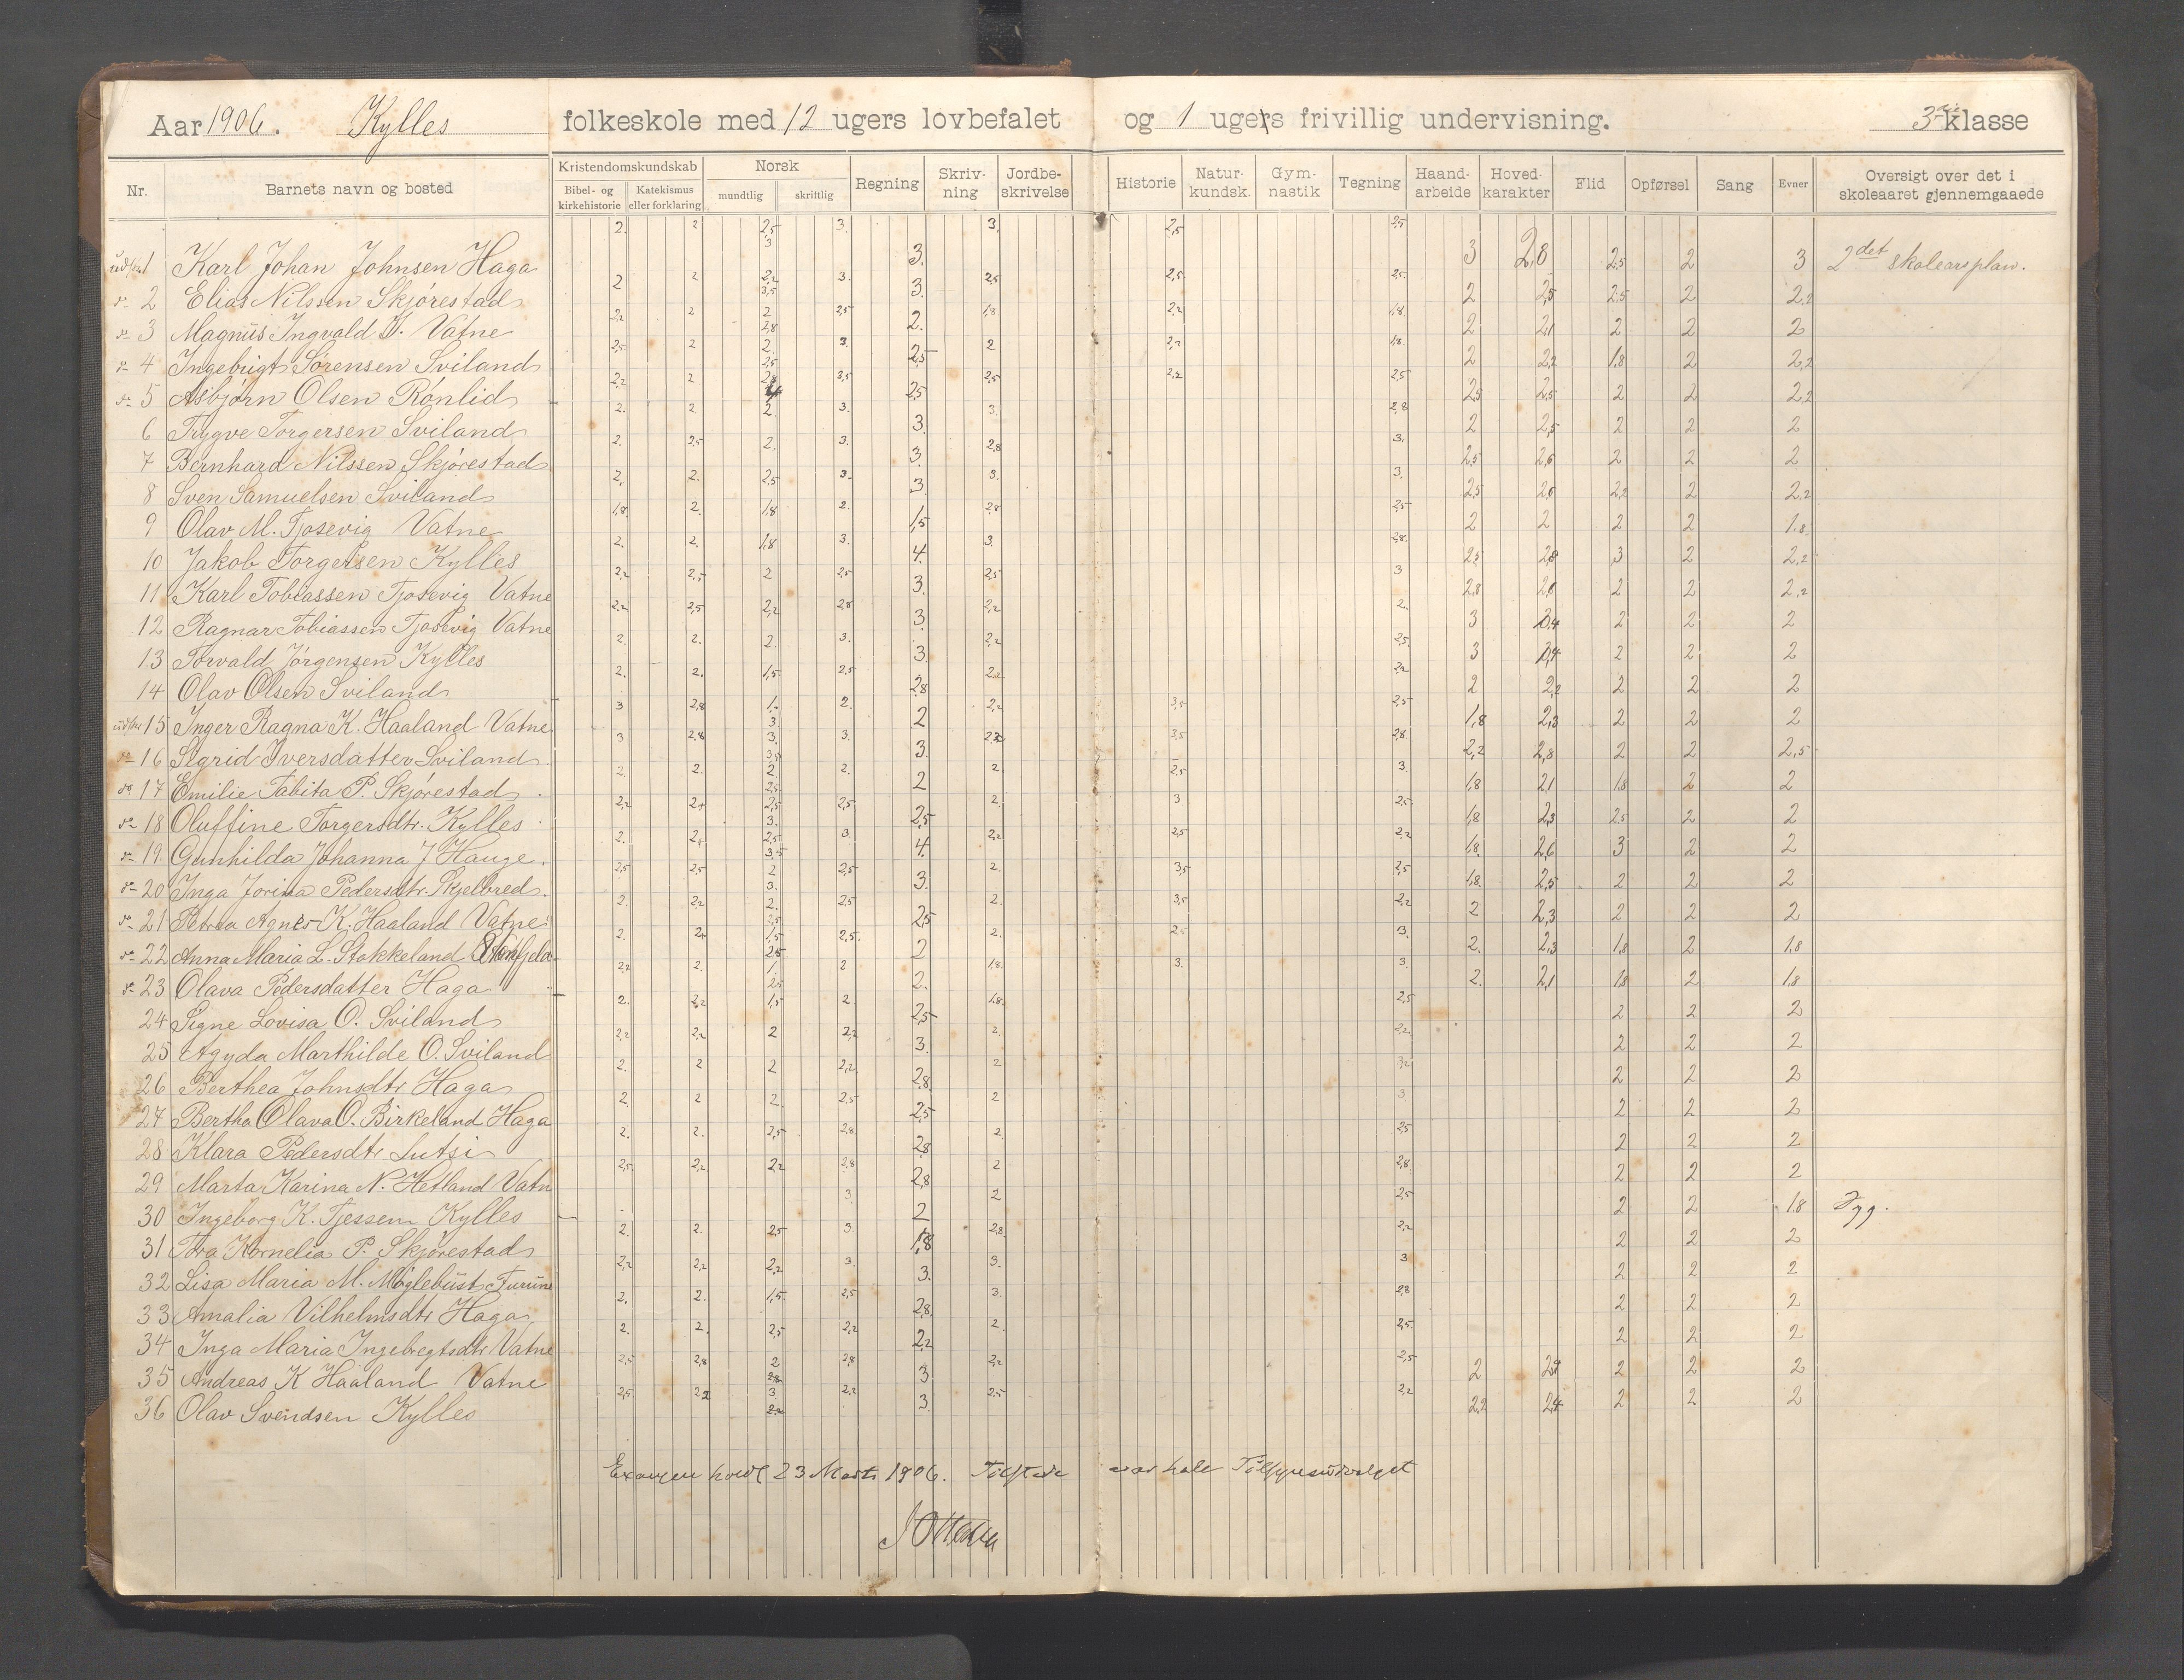 Aar 1906. Kylles folkeskole med 12 ugers lovbefalet og 1 ugers frivillig undervisning. 3die klasse
Nr. Barnets navn og bosted Kristendomskundskab Bibel- og kirkehistorie Katekismus eller forklaring Norsk mundtlig skriftlig Regning Skriv-ning Jordbe-skrivelse Historie Natur-kundsk. Gym-nastik Tegning Haand-arbeide Hoved-karakter Flid Opførsel Sang Evner Oversigt over det i skoleaaret gjennemgaaede
1 Karl Johan Johnsen Haga 2. 2 2,5 3 3. 3. 3. 2,5 2,5 3 2,8 2,5 2 3 2det skoleaarsplan.
2 Elias Nilssen Skjørestad 2 2 2,2 3,5 3. 3. 2,5 2,5 2,5 2 2,5 2,5 2 2,2
3 Magnus Ingvald J. Vatne 2,2 2 2 2,8 2,5 2. 1,8 2,2 1,8 2 2,1 2 2 2
4 Ingebrigt Sørensen Sviland 2,5 2 2 2,5 3. 2,5 2 2,2 1,8 2 2,2 1,8 2 2,2
5 Asbjørn Olsen Rønlid 2,2 2 2,8 3,5 2,5 2,5 2,2 2,5 2,5 2,5 2 2 2,2
6 Trygve Torgersen Sviland 2. 2 2. 3. 3. 3. 2,8 2 2,5 2 2 2
7 Bernhard Nilssen Skjørestad 2. 2,5 2. 3. 3. 2,8 3. 2,5 2,6 2 2 2
8 Sven Samuelsen Sviland 2. 2. 2,5 3. 3. 3. 3. 2,5 2,6 2,2 2 2,2
9 Olav M. Tjosevig Vatne 1,8 2. 1,8 2. 1,5 2,8 2,5 2 2 2 2 1,8
10 Jakob Torgersen Kylles 2. 2. 1,8 3. 4. 3. 2,8 2,5 2,8 3 2 2,2
11 Karl Tobiassen Tjosevig Vatne 2,2 2,5 2 2,5 3. 2,5 3 2,8 2,6 2 2 2,2
12 Ragnar Tobiassen Tjosevig Vatne 2,2 2,5 2,2 2,8 3. 2,2 2. 3 2,4 2 2 2
13 Torvald Jørgensen Kylles 2. 2. 2. 3. 3. 2,2 2,5 3 2,4 2 2 2
14 Olav Olsen Sviland 2. 2. 1,5 2,5 2,8 2,2 2,2 2 2,2 2 2 2
15 Inger Ragna K. Haaland Vatne 3 2,8 1. 3 2. 2 2,2 3,5 2,5 1,8 2,3 2 2 2
16 Sigrid Iversdatter Sviland 3 2,8 3. 3,5 3. 3. 2,2 3,5 2,8 2,2 2,8 2 2 2,5
17 Emilie Tabita P. Skjørestad 2. 2. 2. 2,5 2. 2 2 2,5 3. 1,8 2,1 1,8 2 2
18 Oluffine Torgersdtr. Kylles 2,2 2+ 2,5 3. 2,5 2,5 2. 3 2,5 1,8 2,3 2,5 2 2
19 Gunhilda Johanna J Hauge. 2. 2+ 2,5 3,5 3 4. 2,2 2,5 2,2 1,8 2,6 3 2 2
20 Inga Jorina Pedersdtr. Skjelbred 2,5 2,5 2 3. 2,5 3. 2. 3,5 2,5 1,8 2,5 2 2 2
21 Petrea Agnes K. Haaland Vatne 2. 2,2 2. 2,5 2,5 2,5 2. 3,5 2,2 2 2,3 2 2 2
22 Anna Maria L. Stokkeland 2. 2+ 1,5 2,5 2,5. 2 2. 2,5 3. 2. 2,3 1,8 2 1,8
23 Olava Pedersdatter Haga 2,2 2. 1. 2,5 2 2. 1,8. 3. 3. 2. 2,1 1,8 2 1,8
24 Signe Lovisa O. Sviland 2. 2,2 1,5 2. 2,5 1,8. 2,5 2 2 2
25 Agyda Marthilde O. Sviland 2,2 2,2 2 2,2 3. 2. 2,2 2 2 2
26 Berthea Johnsdtr Haga 2. 2 2 2,2 2,8 2 3,2 2 2 2
27 Bertha Olava O. Birkeland Haga 2. 2 2. 2,5 2,5 2 3 2 2 2
28 Klara Pedersdtr Lutsi 2. 2. 2,5 2,8 2,8 2 2,5 2 2 2
29 Marta Karina N. Hetland Vatn 2,5 2,2 2,2 2,8 2,8 2 2,8 2 2 2
30 Ingeborg K. Tjessem Kylles 3 2 2 2,5 2 2 1,8 Syg.
31 Tora Kornelia P. Skjørestad 2. 2. 2,5 3. 1,8 2,8 2,2 2 2 2
32 Lisa Maria M. Møglebust Furune 2,2 2,2 2,2 3. 3. 3. 3 2 2 2
33 Amalia Vilhelmsdtr Haga 2. 2. 1,5 2,5 2,8 3. 2,8 2 2 2
34 Inga Maria Ingebregtsdtr Vatne 2. 2. 2,5 2,2 2,2 2. 2,5 2 2 2
35 Andreas K Haaland Vatne 2,5 2,8 2 2,8 2,8 3. 2,2 2,5 2 2,4 2 2 2
36 Olav Svendsen Kylles 2,5 2,2 3 2,2 2,2 3. 2,5 2,2 2,2 2,4 2 2 2
Examen holdt 23 Marts 1906. Tilstede var hele Tilsynsudvalget